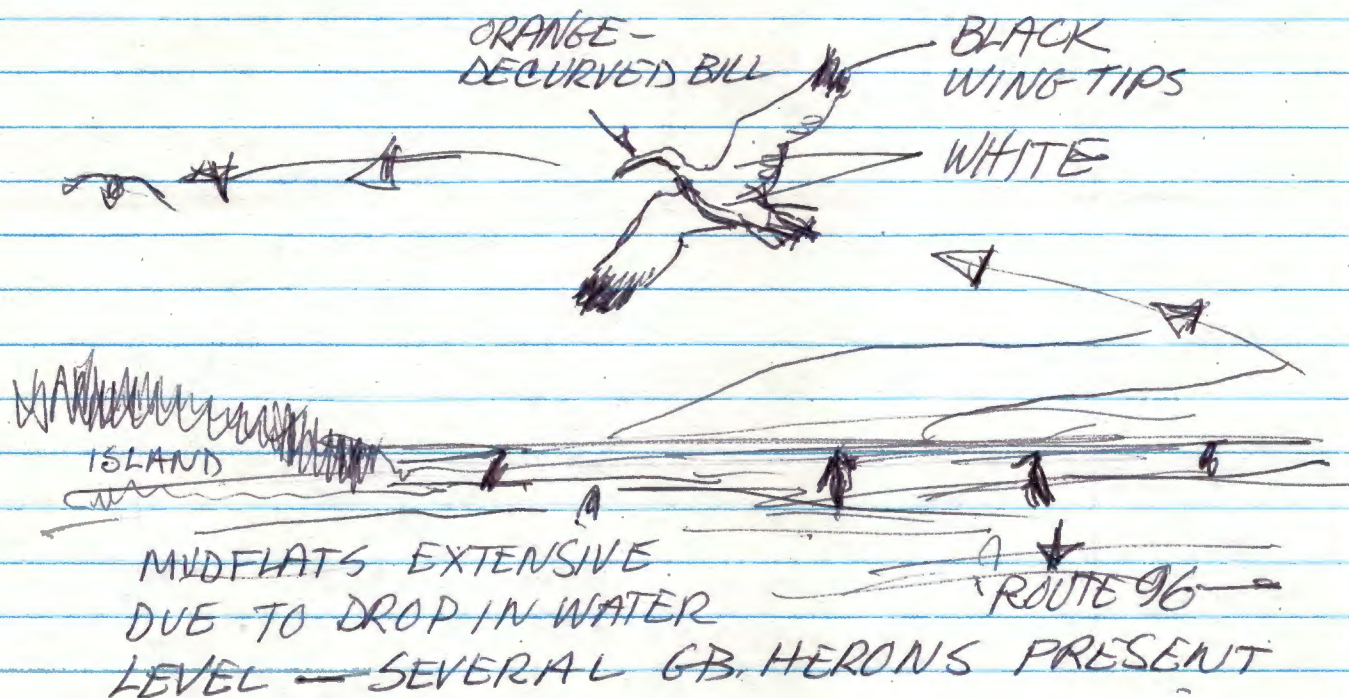 ORANGE-
DECURVED BILL
BLACK
WING TIPS
WHITE
ISLAND
MUDFLATS EXTENSIVE
DUE TO DROP IN WATER
LEVEL — SEVERAL GB. HERONS PRESENT
ROUTE 96